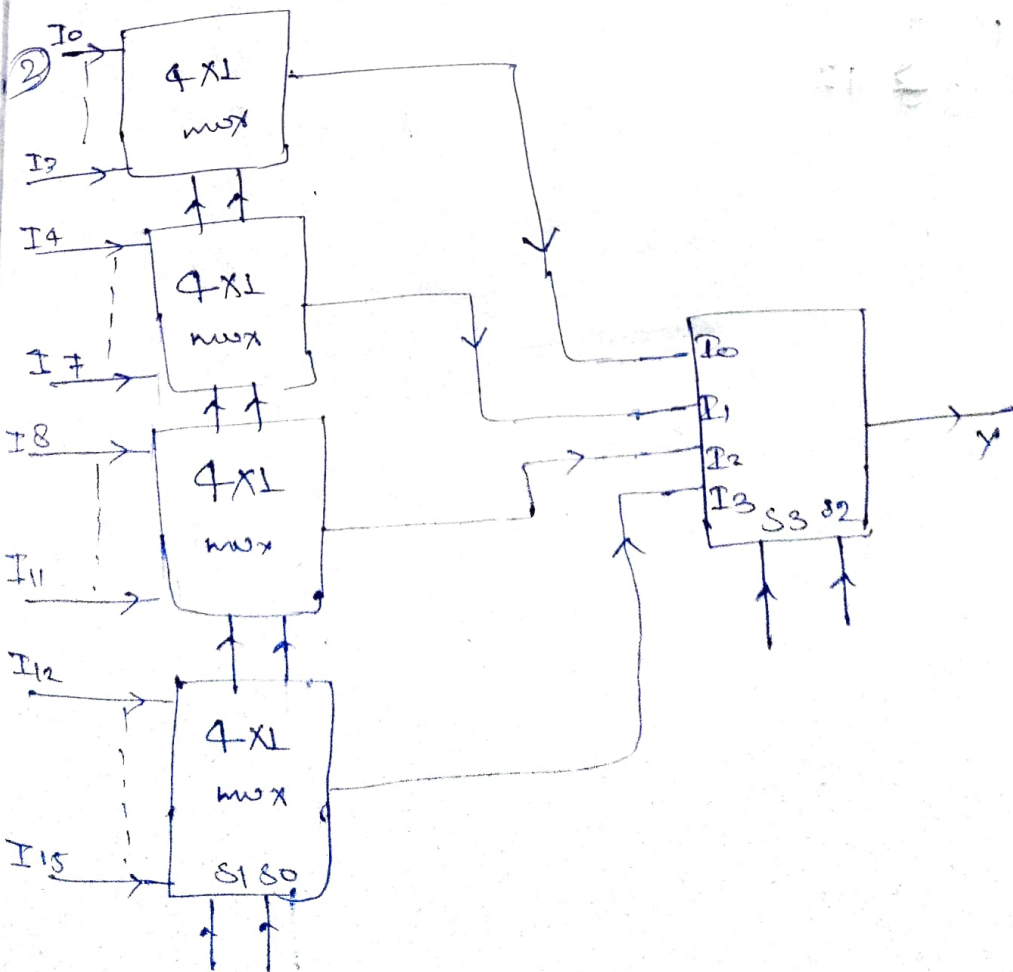 ②
I0
4x1
mux
I3
I4
4x1
mux
I7
I8
4x1
mux
I11
I12
4x1
mux
I15
S1 S0
I0
I1
I2
I3
S3 S2
Y